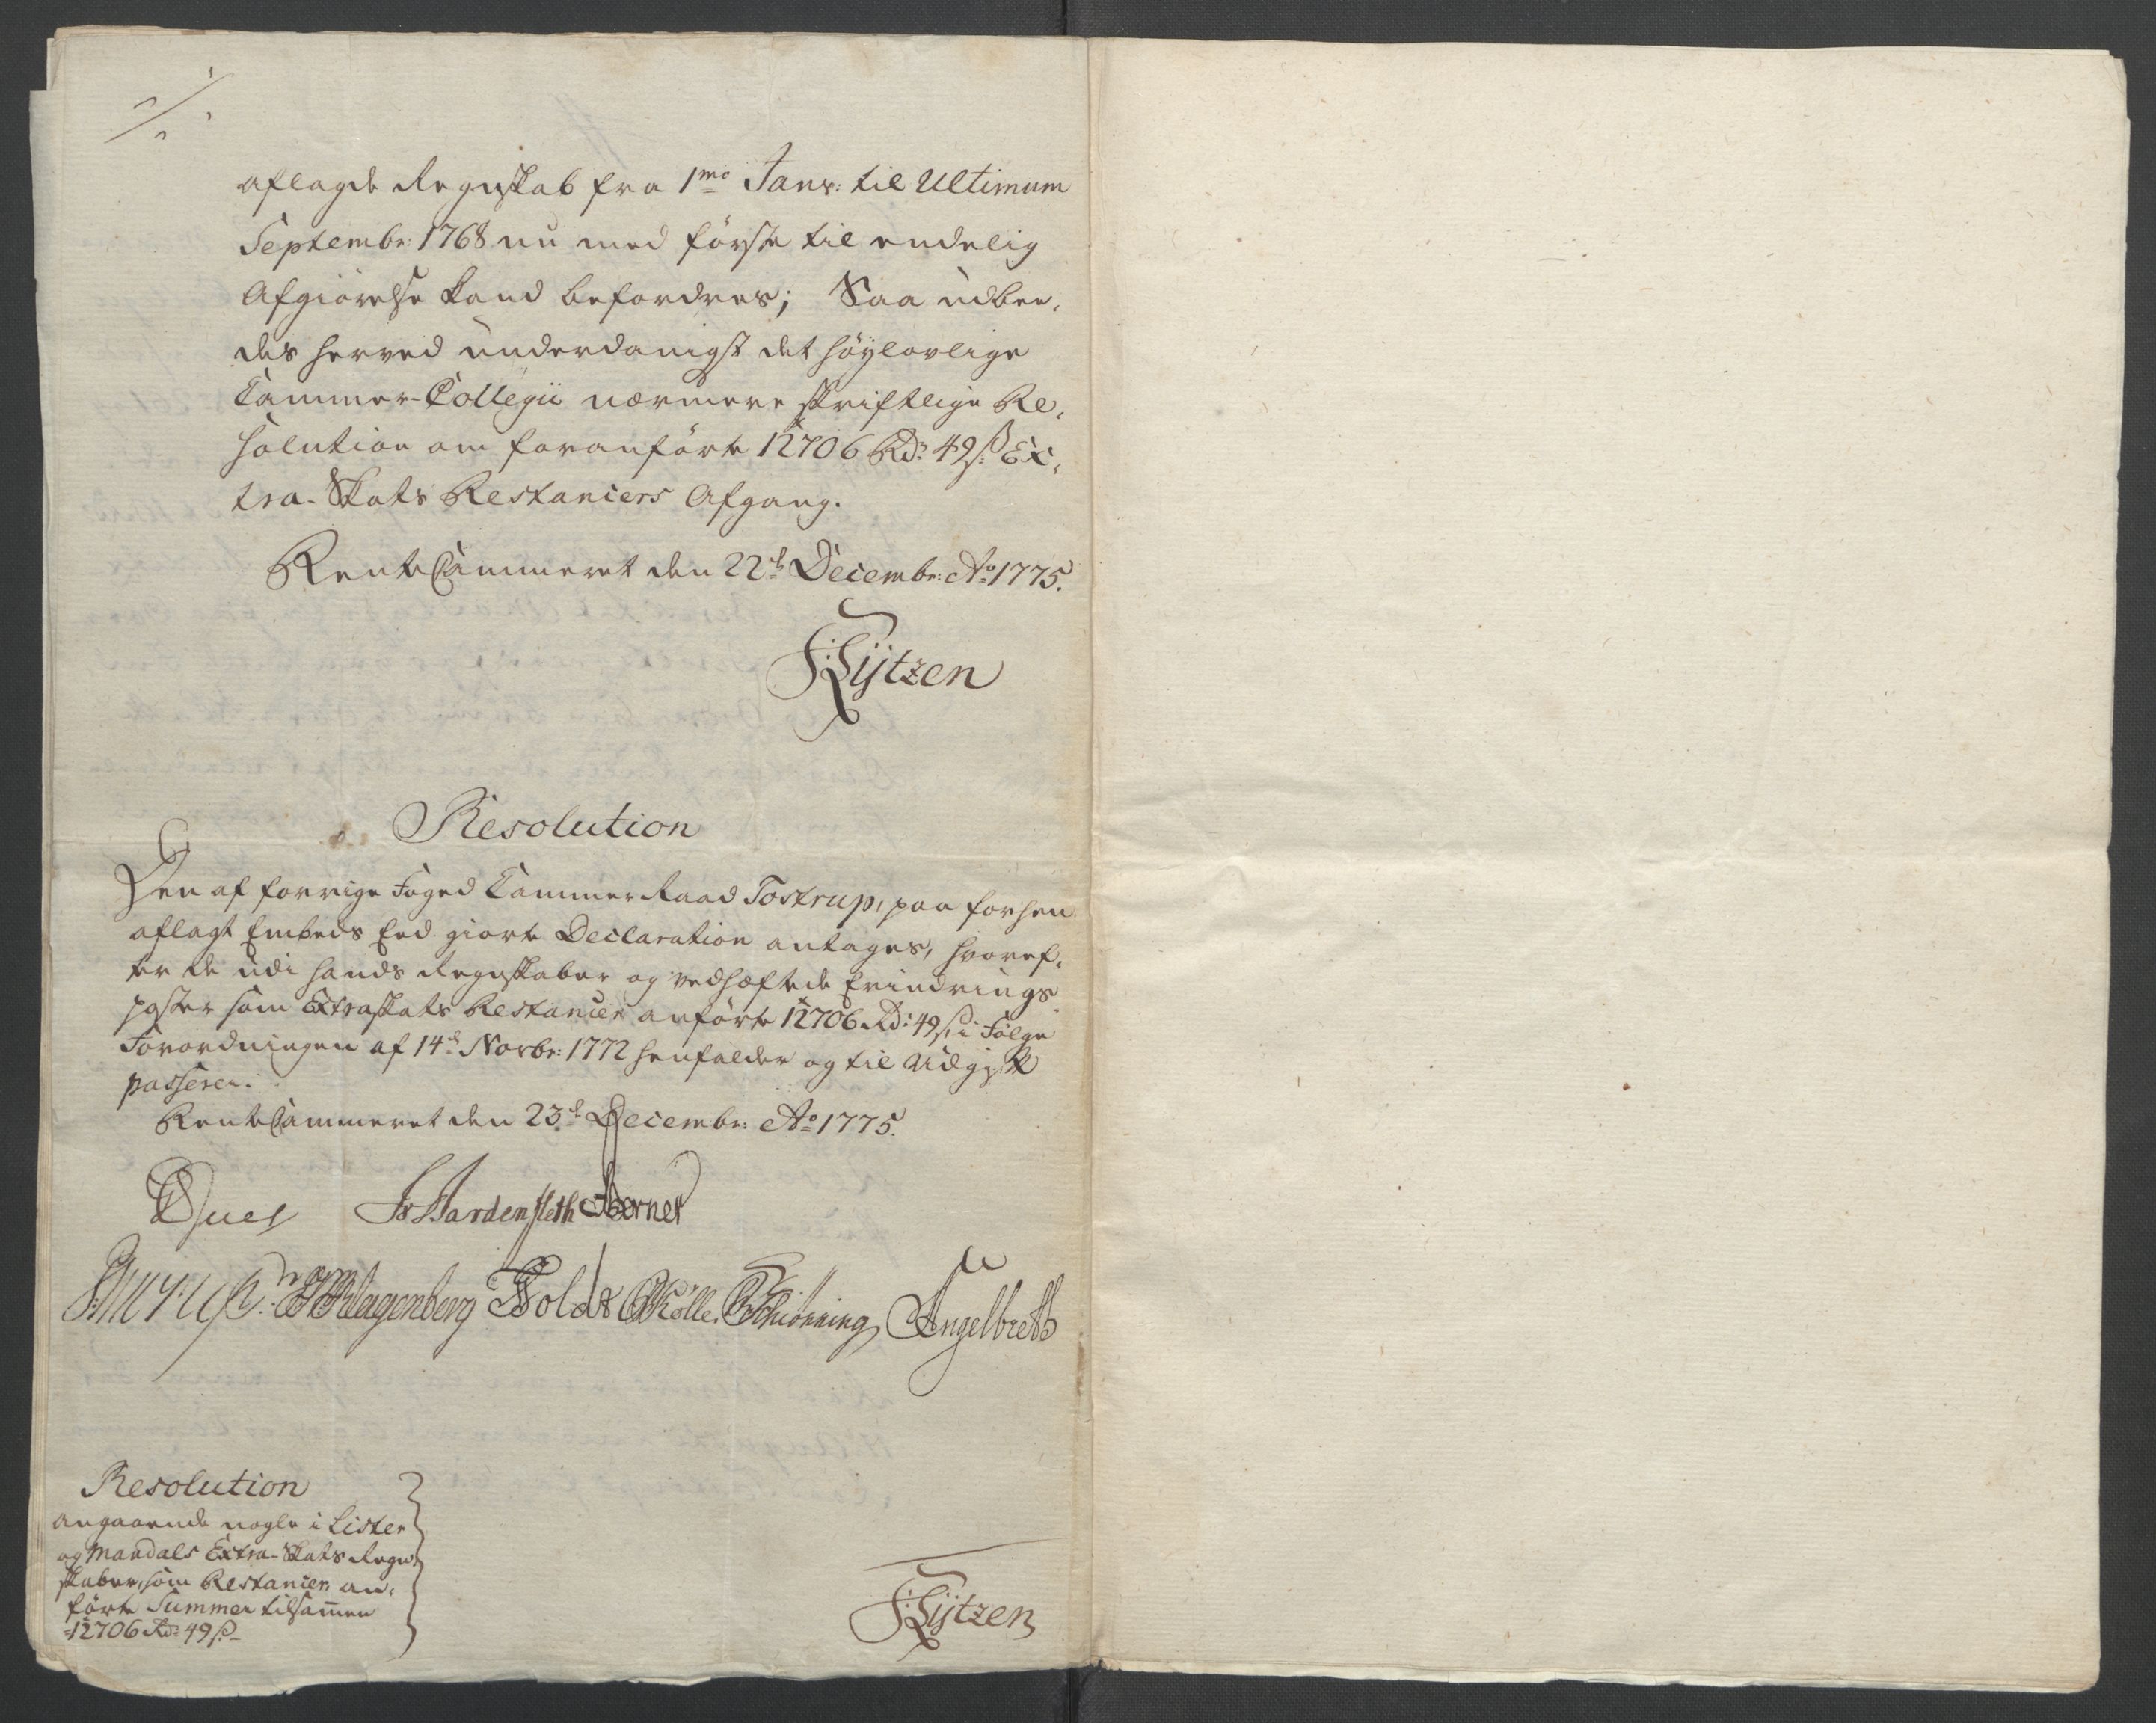 aflagde Regnskab fra 1mo Janr: til Ultimum
Septembr: 1768 nu med første til endelig
Afgiørelse kand befordres; Saa udbee,
des herved underdanigst det høylovlige
Cammer-Collegii nærmere skriftlige Re,
solution om foranførte 12706 Rd: 49 ß: Ex,
tra-Skats Restanciers Afgang.
RenteCammeret den 22de Decembr: Ao 1775.
Lÿtzen
Resolution
Den af forrige Foged CammerRaad Tostrup, paa forhen
aflagt Embeds Eed giorte Declaration antages, hvoref,
ter de udi hands Regnskaber og vedhæftede Erindrings
poster som Extraskats Restancier anførte 12706 Rd: 49 ß, i Følge
Forordningen af 14de Novbr: 1772 henfalder og til Udgift
passerer.
RenteCammeret den 23de Decembr: Ao 1775.
Hardenfleth Berner
Klagenberg Holdt Kølle. Schiønning Engelbreth
Resolution
angaaende nogle i Lister
og Mandals Extra-Skats Regn,
skaber, som Restancier an,
førte Summer tilsamen
12706 Rd: 49 ß
Lÿtzen